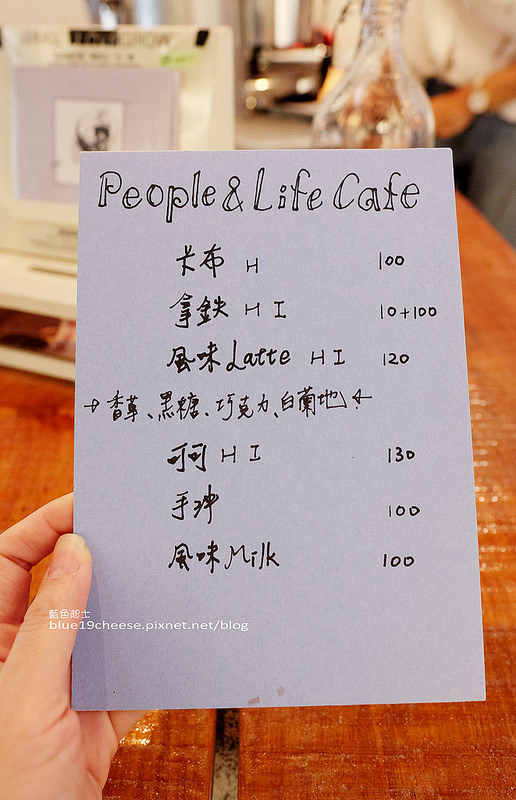 People & Life Cafe
卡布 H 100
拿鉄 H I 10+100
風味 Latte H I 120
→香草、黑糖、巧克力、白蘭地←
可可 H I 130
手沖 100
風味 Milk 100
藍色起士
blue19cheese.pixnet.net/blog